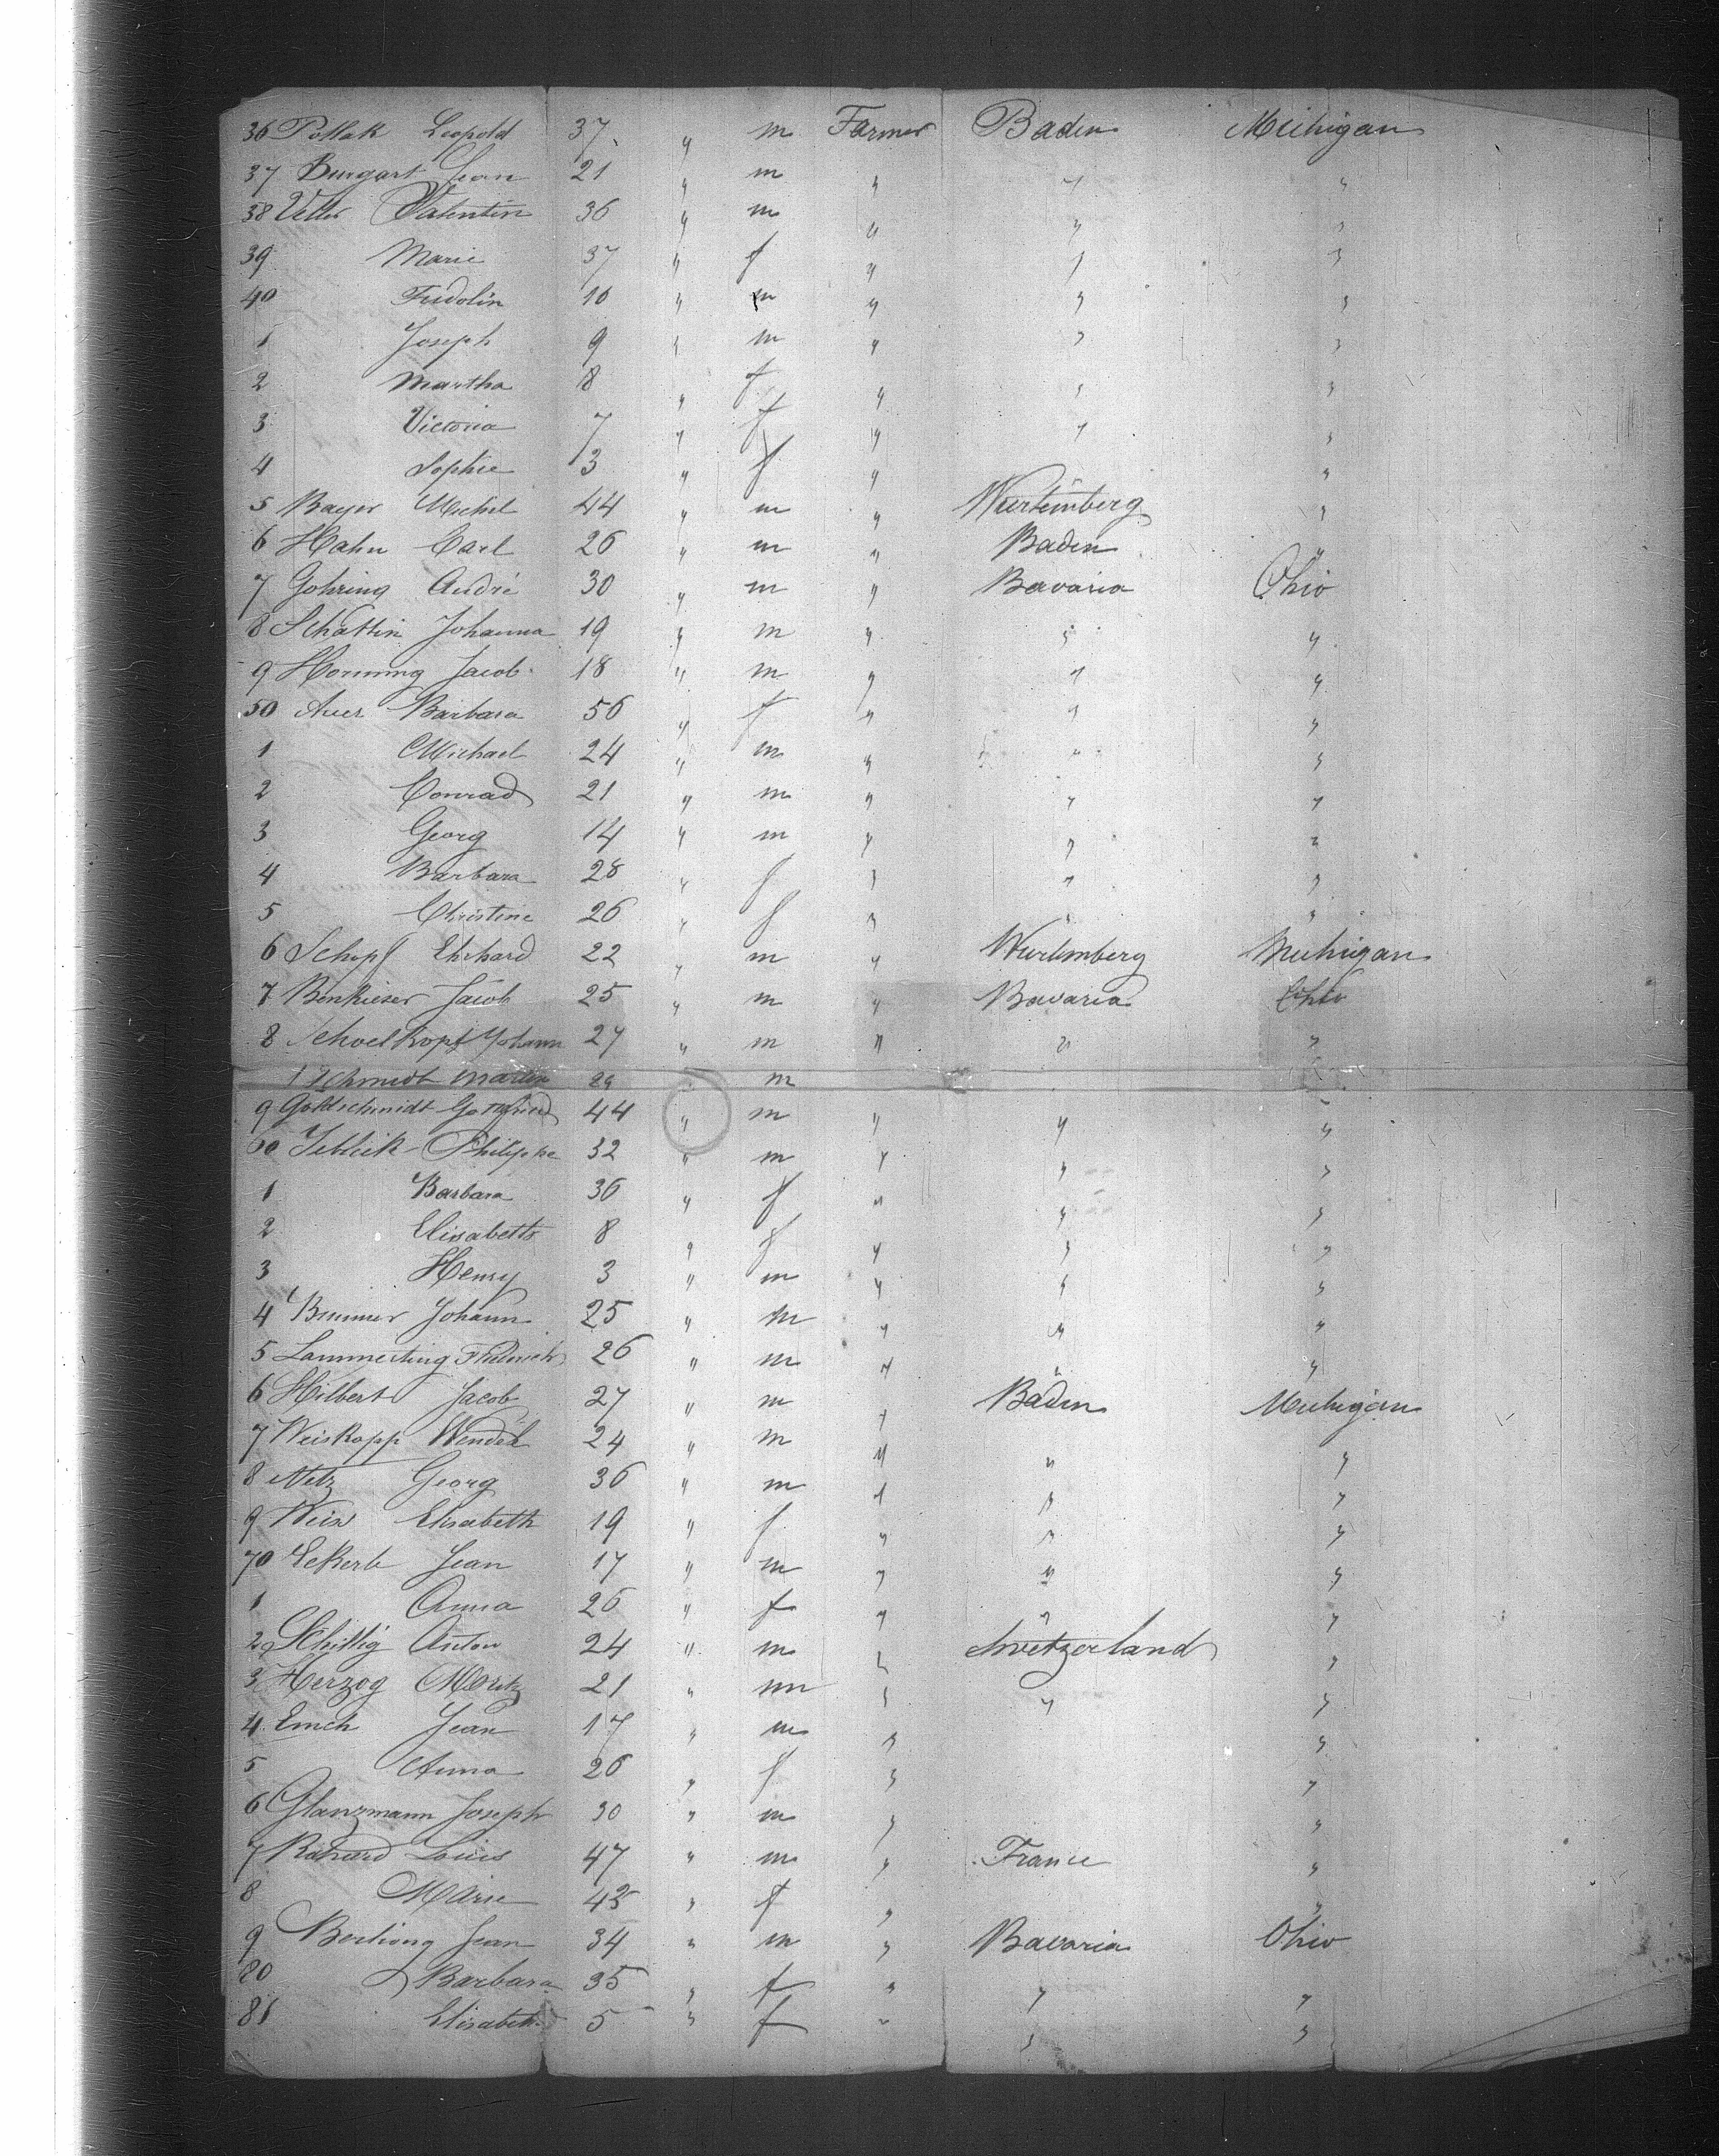 36 Pollak Leopold 37 " m Farmer Baden Michigan
37 Burgart Jean 21 " m " " "
38 Vetter Valentin 36 " m " " "
39 Marie 37 " f " " "
40 Fridolin 10 " m " " "
1 Joseph 9 " m " " "
2 Martha 8 " f " " "
3 Victoria 7 " f " " "
4 Sophie 3 " f " " "
5 Bayer Michel 44 " m " Wurtemberg "
6 Hahn Carl 26 " m " Baden "
7 Gohring André 30 " m " Bavaria Ohio
8 Schattin Johanna 19 " m " " "
9 Hornung Jacob 18 " m " " "
50 Auer Barbara 56 " f " " "
1 Michael 24 " m " " "
2 Conrad 21 " m " " "
3 Georg 14 " m " " "
4 Barbara 28 " f " " "
5 Christine 26 " f " " "
6 Schopf Ehrhard 22 " m " Wurtemberg Michigan
7 Benkieser Jacob 25 " m " Bavaria Ohio
8 Schoelkopf Johann 27 " m " " "
Schmidt Martin 29 m
9 Goldschmidt Gottfried 44 " m " " "
60 Philippe 32 " m " " "
1 Barbara 36 " f " " "
2 Elisabeth 8 " f " " "
3 Henry 3 " m " " "
4 Brunner Johann 25 " m " " "
5 Lammerting 26 " m " " "
6 Hilbert Jacob 27 " m " Baden Michigan
7 Weiskopp Wendel 24 " m " " "
8 Netz Georg 36 " m " " "
9 Weis Elisabeth 19 " f " " "
70 Eckerle Jean 17 " m " " "
1 Anna 26 " f " " "
2 Schillig Anton 24 " m " Switzerland "
3 Herzog Moritz 21 " m " " "
4 Emch Jean 17 " m " "
5 Anna 26 " f " "
6 Glanzmann Joseph 30 " m " "
7 Richard Louis 47 " m " France "
8 Marie 43 " f " "
9 Jean 34 " m " Bavaria Ohio
80 Barbara 35 " f " " "
81 Elisabeth 5 " f " " "